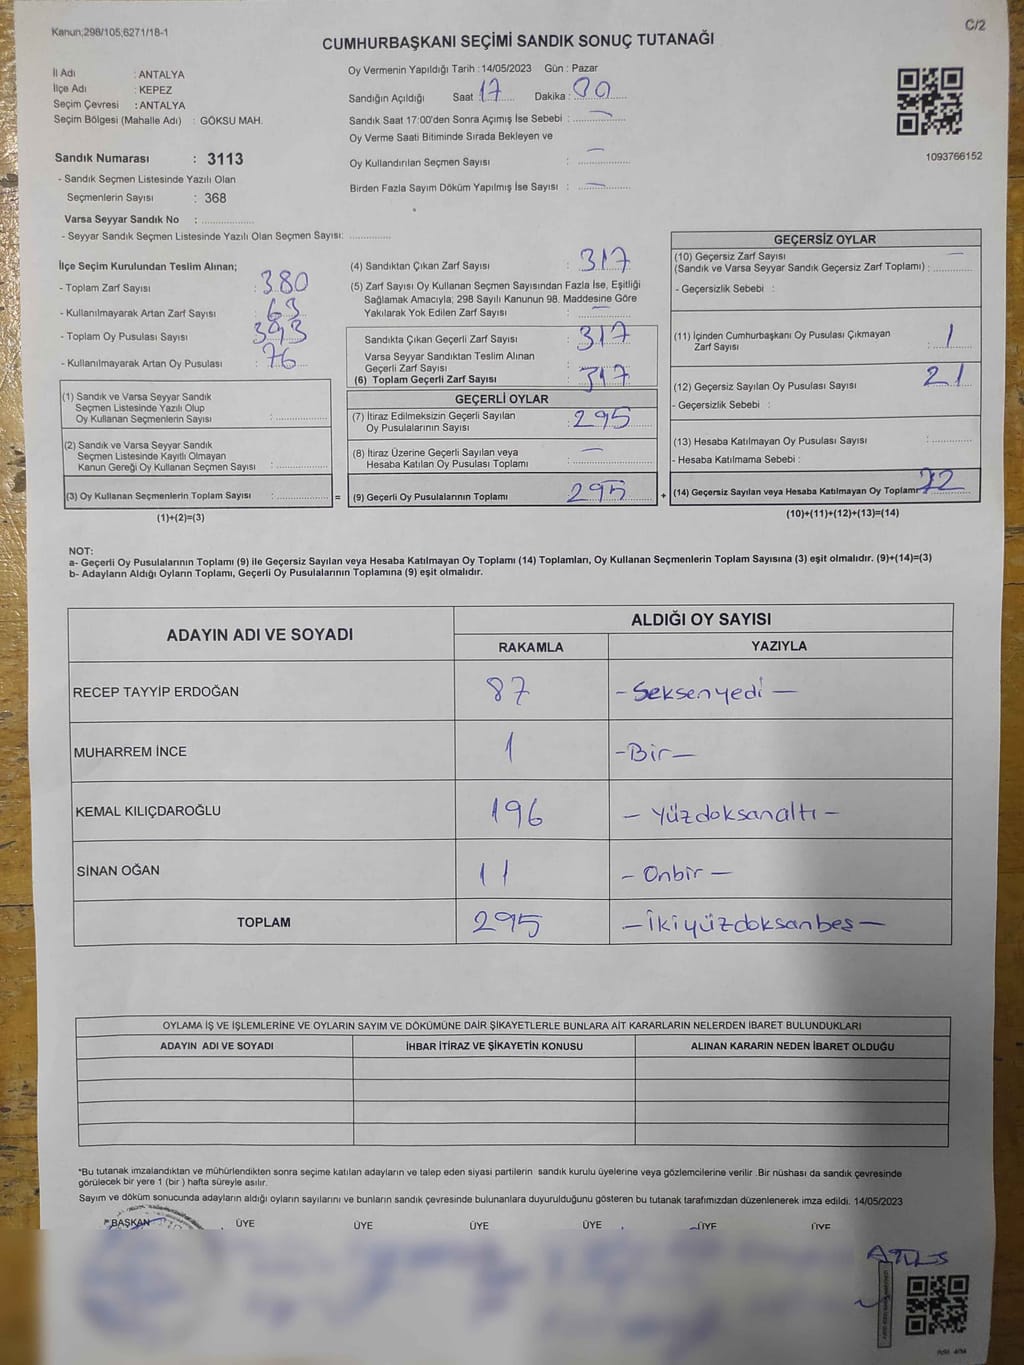 Kanun;298/105;6271/18-1
C/2
CUMHURBAŞKANI SEÇİMİ SANDIK SONUÇ TUTANAĞI
İl Adı : ANTALYA
İlçe Adı : KEPEZ
Seçim Çevresi : ANTALYA
Seçim Bölgesi (Mahalle Adı) : GÖKSU MAH.
Oy Vermenin Yapıldığı Tarih : 14/05/2023 Gün : Pazar
Sandığın Açıldığı Saat : 17 Dakika : 00
Sandık Saat 17:00'den Sonra Açımış İse Sebebi : —
Oy Verme Saati Bitiminde Sırada Bekleyen ve
Oy Kullandırılan Seçmen Sayısı : —
Birden Fazla Sayım Döküm Yapılmış İse Sayısı : —
1093766152
Sandık Numarası : 3113
- Sandık Seçmen Listesinde Yazılı Olan
Seçmenlerin Sayısı : 368
Varsa Seyyar Sandık No : ................
- Seyyar Sandık Seçmen Listesinde Yazılı Olan Seçmen Sayısı: ............
İlçe Seçim Kurulundan Teslim Alınan;
- Toplam Zarf Sayısı : 380
- Kullanılmayarak Artan Zarf Sayısı : 63
- Toplam Oy Pusulası Sayısı : 393
- Kullanılmayarak Artan Oy Pusulası : 76
(1) Sandık ve Varsa Seyyar Sandık
Seçmen Listesinde Yazılı Olup
Oy Kullanan Seçmenlerin Sayısı : ................
(2) Sandık ve Varsa Seyyar Sandık
Seçmen Listesinde Kayıtlı Olmayan
Kanun Gereği Oy Kullanan Seçmen Sayısı : ................
(3) Oy Kullanan Seçmenlerin Toplam Sayısı : ................ =
(1)+(2)=(3)
(4) Sandıktan Çıkan Zarf Sayısı : 317
(5) Zarf Sayısı Oy Kullanan Seçmen Sayısından Fazla İse, Eşitliği
Sağlamak Amacıyla; 298 Sayılı Kanunun 98. Maddesine Göre
Yakılarak Yok Edilen Zarf Sayısı : —
Sandıkta Çıkan Geçerli Zarf Sayısı : 317
Varsa Seyyar Sandıktan Teslim Alınan
Geçerli Zarf Sayısı :
(6) Toplam Geçerli Zarf Sayısı : 317
GEÇERLİ OYLAR
(7) İtiraz Edilmeksizin Geçerli Sayılan
Oy Pusulalarının Sayısı : 295
(8) İtiraz Üzerine Geçerli Sayılan veya
Hesaba Katılan Oy Pusulası Toplamı : —
(9) Geçerli Oy Pusulalarının Toplamı 295 +
GEÇERSİZ OYLAR
(10) Geçersiz Zarf Sayısı —
(Sandık ve Varsa Seyyar Sandık Geçersiz Zarf Toplamı) : ............
- Geçersizlik Sebebi :
(11) İçinden Cumhurbaşkanı Oy Pusulası Çıkmayan
Zarf Sayısı : 1
(12) Geçersiz Sayılan Oy Pusulası Sayısı : 21
- Geçersizlik Sebebi :
(13) Hesaba Katılmayan Oy Pusulası Sayısı : ............
- Hesaba Katılmama Sebebi :
(14) Geçersiz Sayılan veya Hesaba Katılmayan Oy Toplamı 22
(10)+(11)+(12)+(13)=(14)
NOT:
a- Geçerli Oy Pusulalarının Toplamı (9) ile Geçersiz Sayılan veya Hesaba Katılmayan Oy Toplamı (14) Toplamları, Oy Kullanan Seçmenlerin Toplam Sayısına (3) eşit olmalıdır. (9)+(14)=(3)
b- Adayların Aldığı Oyların Toplamı, Geçerli Oy Pusulalarının Toplamına (9) eşit olmalıdır.
ADAYIN ADI VE SOYADI
ALDIĞI OY SAYISI
RAKAMLA YAZIYLA
RECEP TAYYİP ERDOĞAN 87 -Seksenyedi-
MUHARREM İNCE 1 -Bir-
KEMAL KILIÇDAROĞLU 196 - Yüzdoksanaltı -
SİNAN OĞAN 11 - Onbir -
TOPLAM 295 -İkiyüzdoksanbeş-
OYLAMA İŞ VE İŞLEMLERİNE VE OYLARIN SAYIM VE DÖKÜMÜNE DAİR ŞİKAYETLERLE BUNLARA AİT KARARLARIN NELERDEN İBARET BULUNDUKLARI
ADAYIN ADI VE SOYADI İHBAR İTİRAZ VE ŞİKAYETİN KONUSU ALINAN KARARIN NEDEN İBARET OLDUĞU
*Bu tutanak imzalandıktan ve mühürlendikten sonra seçime katılan adayların ve talep eden siyasi partilerin sandık kurulu üyelerine veya gözlemcilerine verilir .Bir nüshası da sandık çevresinde
görülecek bir yere 1 (bir ) hafta süreyle asılır.
Sayım ve döküm sonucunda adayların aldığı oyların sayılarını ve bunların sandık çevresinde bulunanlara duyurulduğunu gösteren bu tutanak tarafımızdan düzenlenerek imza edildi. 14/05/2023
BAŞKAN ÜYE ÜYE ÜYE ÜYE ÜYE ÜYE